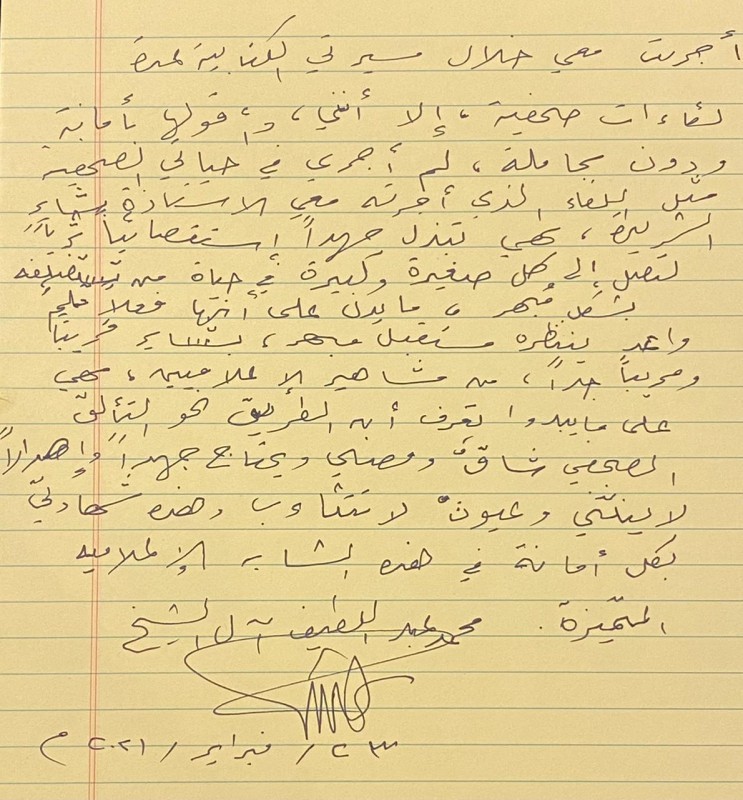 أجريت معي خلال مسيرتي الكتابية لعدة
لقاءات صحفية ، إلا أنني ، وأقولها بأمانة
ودون مجاملة ، لم أجري في حياتي الصحفية
مثل اللقاء الذي أجرته معي الاستاذة بشاير
الشريدة ، فهي تبذل جهداً استقصائياً
لتصل إلى كل صغيرة وكبيرة في حياة من تستضيفه
بشكل مبهر ، مايدل على أنها فعلاً
واعد ينتظره مستقبل مبهر ، بشاير قريباً
وقريباً جداً ، من مشاهير الإعلاميين ، فهي
على مايبدوا تعرف أن الطريق نحو التألق
الصحفي شاقٌ ومضني ويحتاج جهداً وإصراراً
لا ينثني وعيون لا تتثاوب وهذه شهادتي
بكل أمانة في هذه الشابه الإعلاميه
المتميزة . محمد عبد اللطيف آل الشيخ
٢٣ / فبراير / ٢٠٢١ م